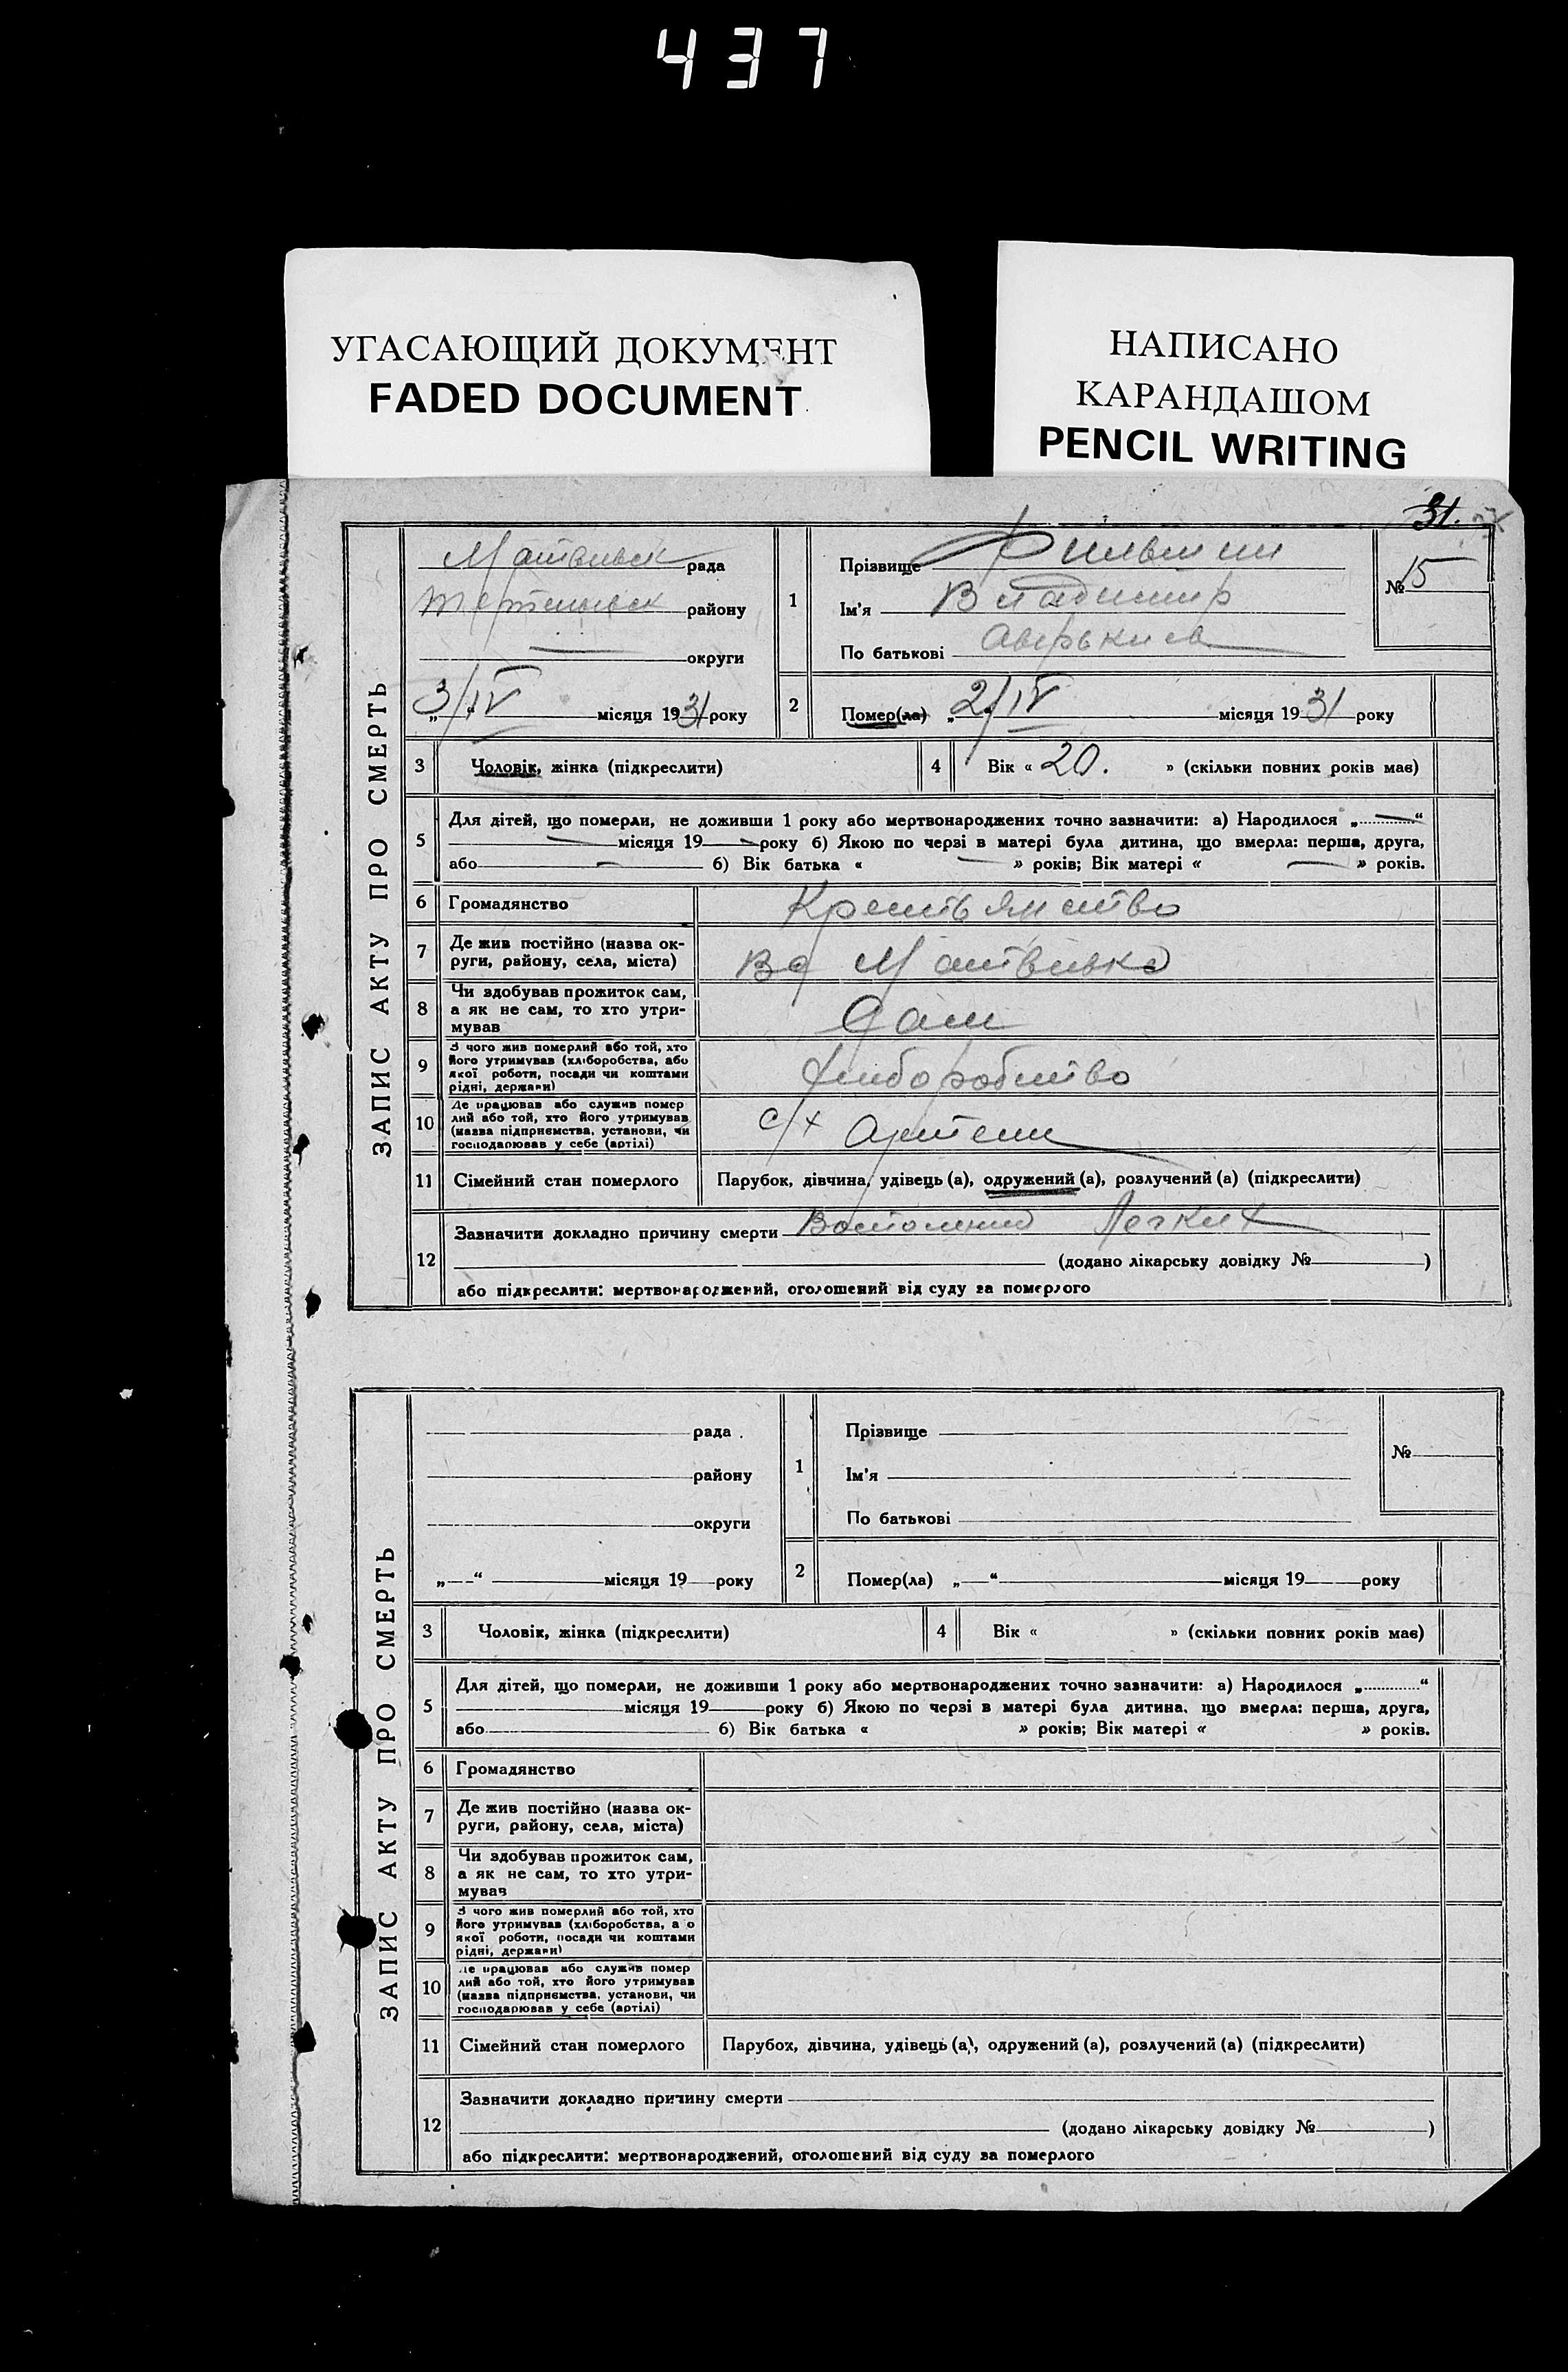 437
УГАСАЮЩИЙ ДОКУМЕНТ
FADED DOCUMENT
НАПИСАНО
КАРАНДАШОМ
PENCIL WRITING
31.
ЗАПИС АКТУ ПРО СМЕРТЬ
рада
району
округи
3/IV місяця 1931 року
1
Прізвище
Ім'я Владимир
По батькові Аверькиев
№ 15
2
Помер(ла) „2/IV місяця 1931 року
3 Чоловік, жінка (підкреслити)
4 Вік « 20. » (скільки повних років має)
5
Для дітей, що померли, не доживши 1 року або мертвонароджених точно зазначити: а) Народилося „—“
— місяця 19— року б) Якою по черзі в матері була дитина, що вмерла: перша, друга,
або — б) Вік батька « — » років; Вік матері « — » років.
6 Громадянство Крестьянство
7
Де жив постійно (назва ок-
руги, району, села, міста)
8
Чи здобував прожиток сам,
а як не сам, то хто утри-
мував
Сам
9
З чого жив померлий або той, хто
його утримував (хліборобства, або
якої роботи, посади чи коштами
рідні, держави)
Хлиборобство
10
Де працював або служив помер
лий або той, хто його утримував
(назва підприємства, установи, чи
господарював у себе (артілі)
с/х Артели
11 Сімейний стан померлого Парубок, дівчина, удівець (а), одружений (а), розлучений (а) (підкреслити)
12
Зазначити докладно причину смерти Легких
(додано лікарську довідку № )
або підкреслити: мертвонароджений, оголошений від суду за померлого
ЗАПИС АКТУ ПРО СМЕРТЬ
рада
району
округи
„—“ місяця 19— року
1
Прізвище
Ім'я
По батькові
№
2
Помер(ла) „—“ місяця 19 року
3 Чоловік, жінка (підкреслити)
4 Вік « » (скільки повних років має)
5
Для дітей, що померли, не доживши 1 року або мертвонароджених точно зазначити: а) Народилося „ “
місяця 19 року б) Якою по черзі в матері була дитина, що вмерла: перша, друга,
або б) Вік батька « » років; Вік матері « » років.
6 Громадянство
7
Де жив постійно (назва ок-
руги, району, села, міста)
8
Чи здобував прожиток сам,
а як не сам, то хто утри-
мував
9
З чого жив померлий або той, хто
його утримував (хліборобства, або
якої роботи, посади чи коштами
рідні, держави)
10
Де працював або служив помер
лий або той, хто його утримував
(назва підприємства, установи, чи
господарював у себе (артілі)
11 Сімейний стан померлого Парубок, дівчина, удівець (а), одружений (а), розлучений (а) (підкреслити)
12
Зазначити докладно причину смерти
(додано лікарську довідку № )
або підкреслити: мертвонароджений, оголошений від суду за померлого